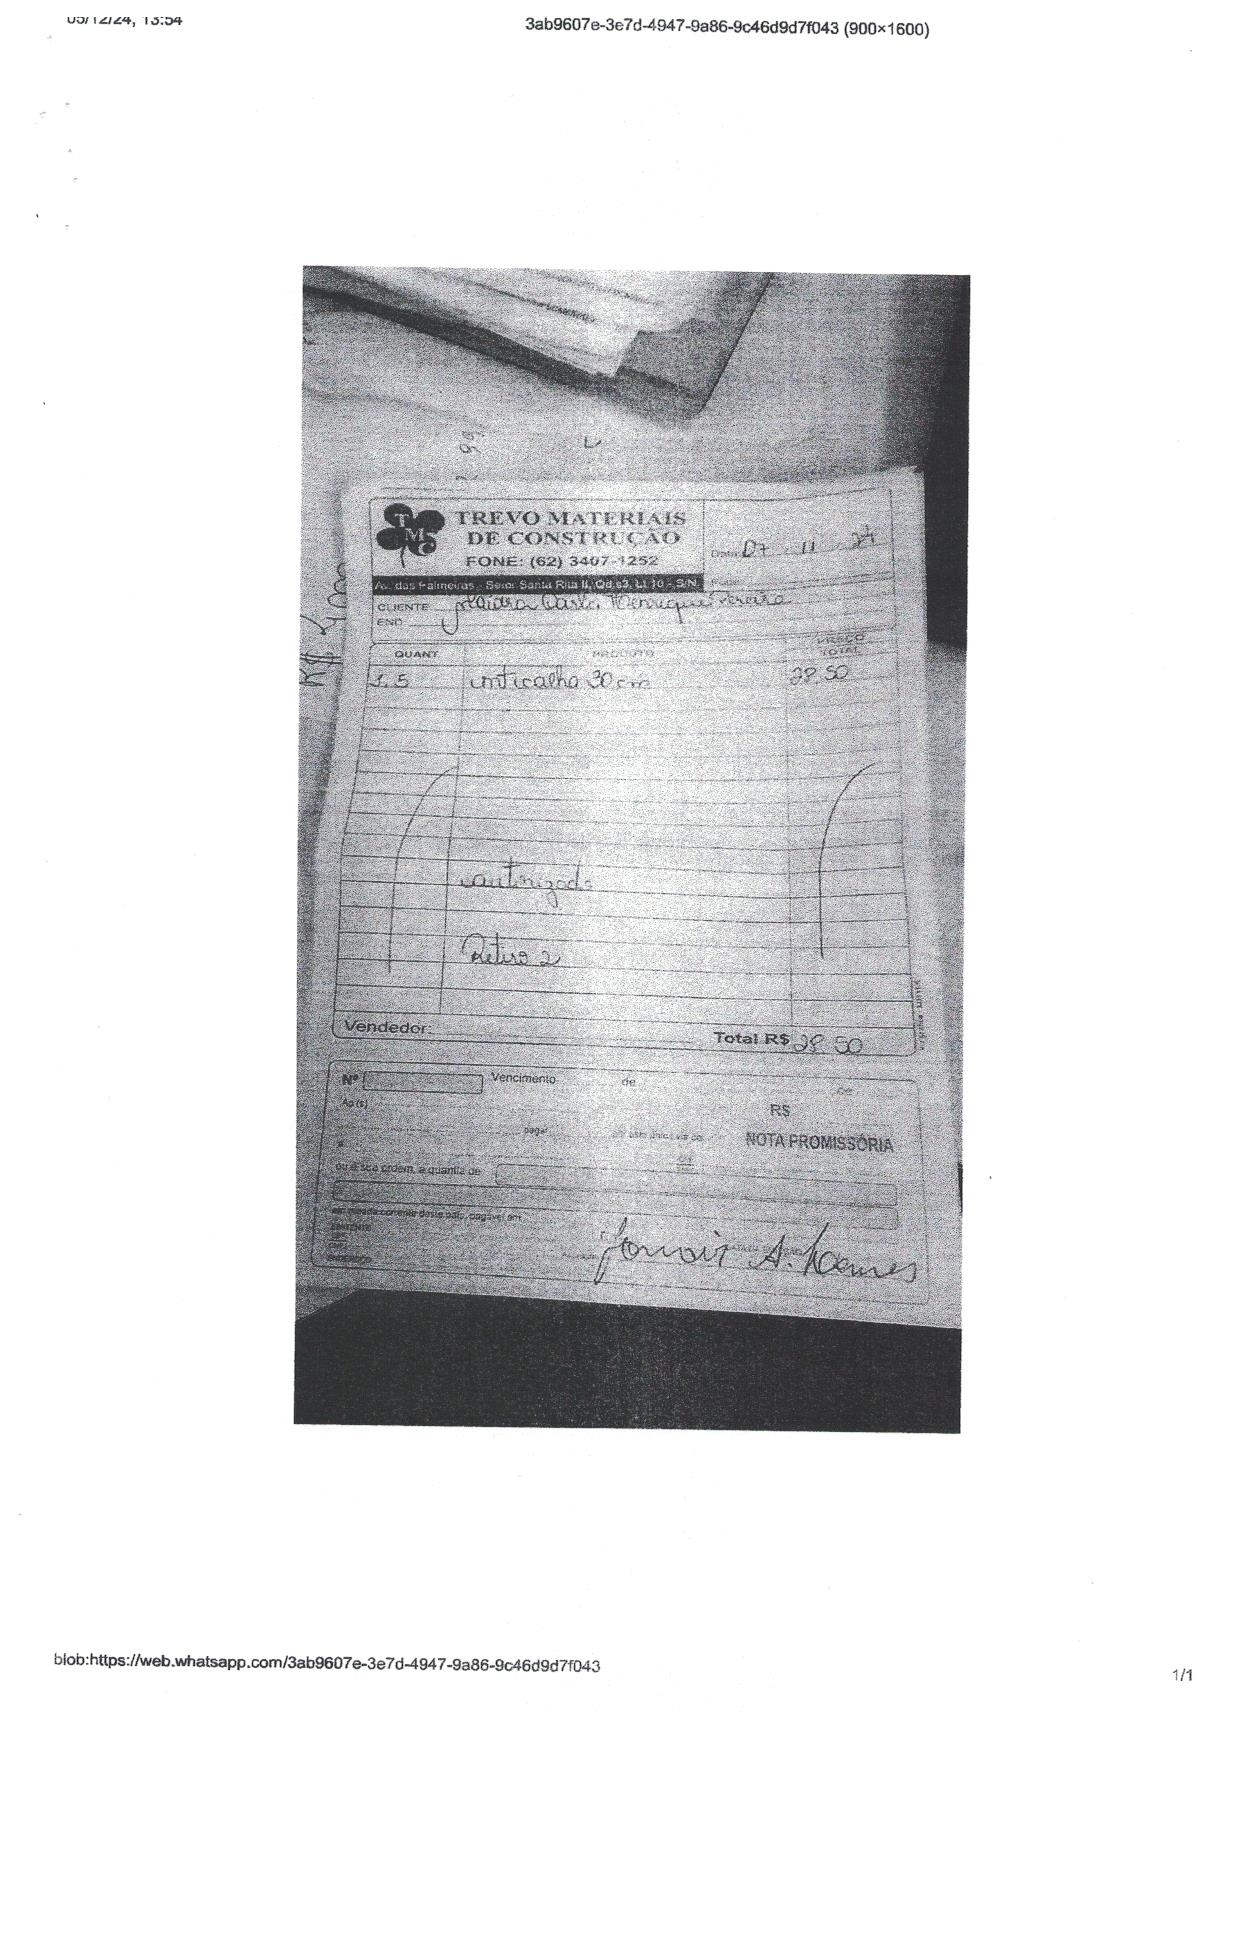 05/12/24, 13:54
3ab9607e-3e7d-4947-9a86-9c46d9d7f043 (900×1600)
TMC
TREVO MATERIAIS
DE CONSTRUÇÃO
FONE: (62) 3407-1252
Data 07 . 11 . 24
Av. das Palmeiras - Setor Santa Rita II, Qd. 63, Lt. 10 - S/N
CLIENTE Carlos Henrique Pereira
END
QUANT. PRODUTO PREÇO TOTAL
1.5 30cm 28 50
autorizado
Retiro 2
Vendedor:
Total R$ 28 50
Nº
Vencimento de de
Ao(s)
R$
pagar
NOTA PROMISSÓRIA
ou à sua ordem, a quantia de
em moeda corrente deste país, pagável em
EMITENTE
R$
blob:https://web.whatsapp.com/3ab9607e-3e7d-4947-9a86-9c46d9d7f043
1/1